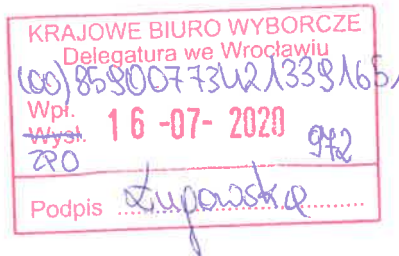 KRAJOWE BIURO WYBORCZE
Delegatura we Wrocławiu
(00) 859007734213391651
Wpł. 16 -07- 2020
Wysł. 972
ZPO
Podpis Żupowska